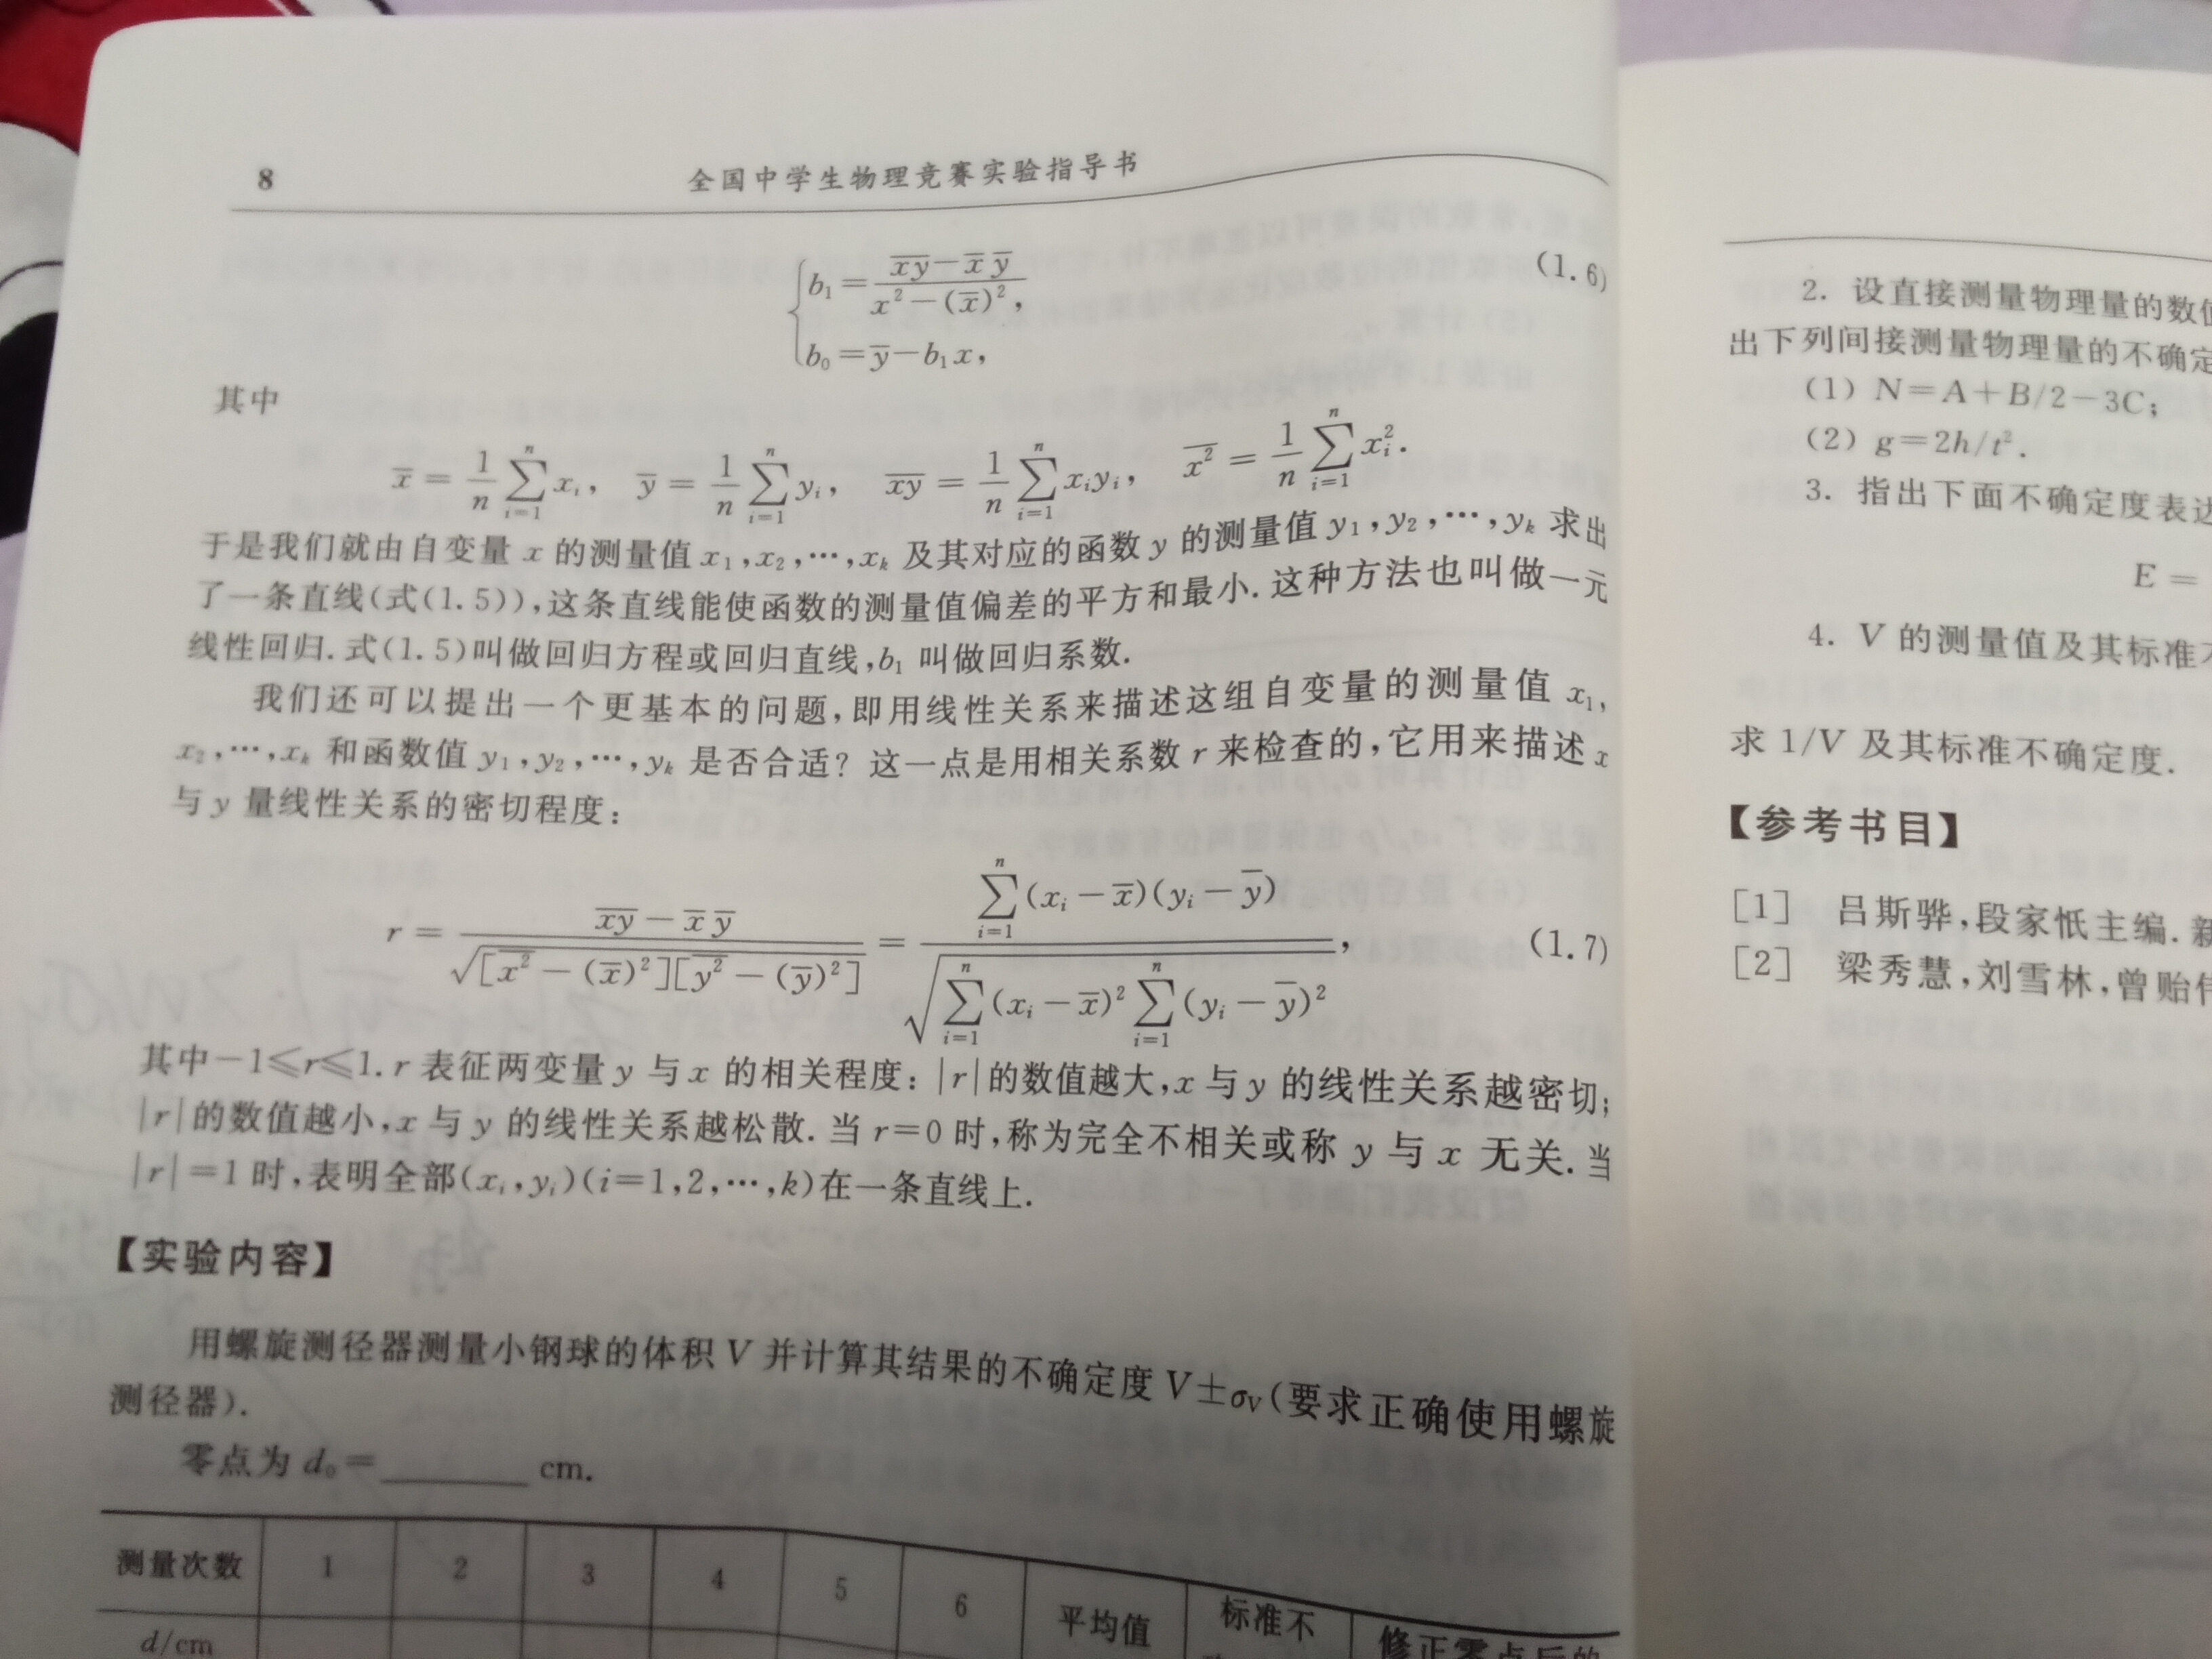 8 全国中学生物理竞赛实验指导书
b₁ = (x̅y̅ − x̅ y̅) / (x² − (x̅)²),
(1.6)
b₀ = y̅ − b₁x,
其中
x̅ = 1/n ∑ᵢ₌₁ⁿ xᵢ, y̅ = 1/n ∑ᵢ₌₁ⁿ yᵢ, x̅y̅ = 1/n ∑ᵢ₌₁ⁿ xᵢyᵢ, \overline{x²} = 1/n ∑ᵢ₌₁ⁿ xᵢ².
于是我们就由自变量 x 的测量值 x₁,x₂,…,xₖ 及其对应的函数 y 的测量值 y₁,y₂,…,yₖ 求出
了一条直线(式(1.5)),这条直线能使函数的测量值偏差的平方和最小.这种方法也叫做一元
线性回归.式(1.5)叫做回归方程或回归直线,b₁ 叫做回归系数.
我们还可以提出一个更基本的问题,即用线性关系来描述这组自变量的测量值 x₁,
x₂,…,xₖ 和函数值 y₁,y₂,…,yₖ 是否合适? 这一点是用相关系数 r 来检查的,它用来描述 x
与 y 量线性关系的密切程度:
r = (x̅y̅ − x̅ y̅) / √([\overline{x²} − (x̅)²][\overline{y²} − (y̅)²]) = ∑ᵢ₌₁ⁿ (xᵢ − x̅)(yᵢ − y̅) / √(∑ᵢ₌₁ⁿ (xᵢ − x̅)² ∑ᵢ₌₁ⁿ (yᵢ − y̅)²), (1.7)
其中−1≤r≤1. r 表征两变量 y 与 x 的相关程度: |r|的数值越大,x 与 y 的线性关系越密切;
|r|的数值越小,x 与 y 的线性关系越松散. 当 r=0 时,称为完全不相关或称 y 与 x 无关. 当
|r|=1 时,表明全部(xᵢ,yᵢ)(i=1,2,…,k)在一条直线上.
【实验内容】
用螺旋测径器测量小钢球的体积 V 并计算其结果的不确定度 V±σᵥ(要求正确使用螺旋
测径器).
零点为 d₀=______ cm.
测量次数 1 2 3 4 5 6 平均值 标准不 修正零点后的
d/cm
2. 设直接测量物理量的数值
出下列间接测量物理量的不确定
(1) N=A+B/2−3C;
(2) g=2h/t².
3. 指出下面不确定度表达
E =
4. V 的测量值及其标准不
求 1/V 及其标准不确定度.
【参考书目】
[1] 吕斯骅,段家忯主编. 新
[2] 梁秀慧,刘雪林,曾贻伟